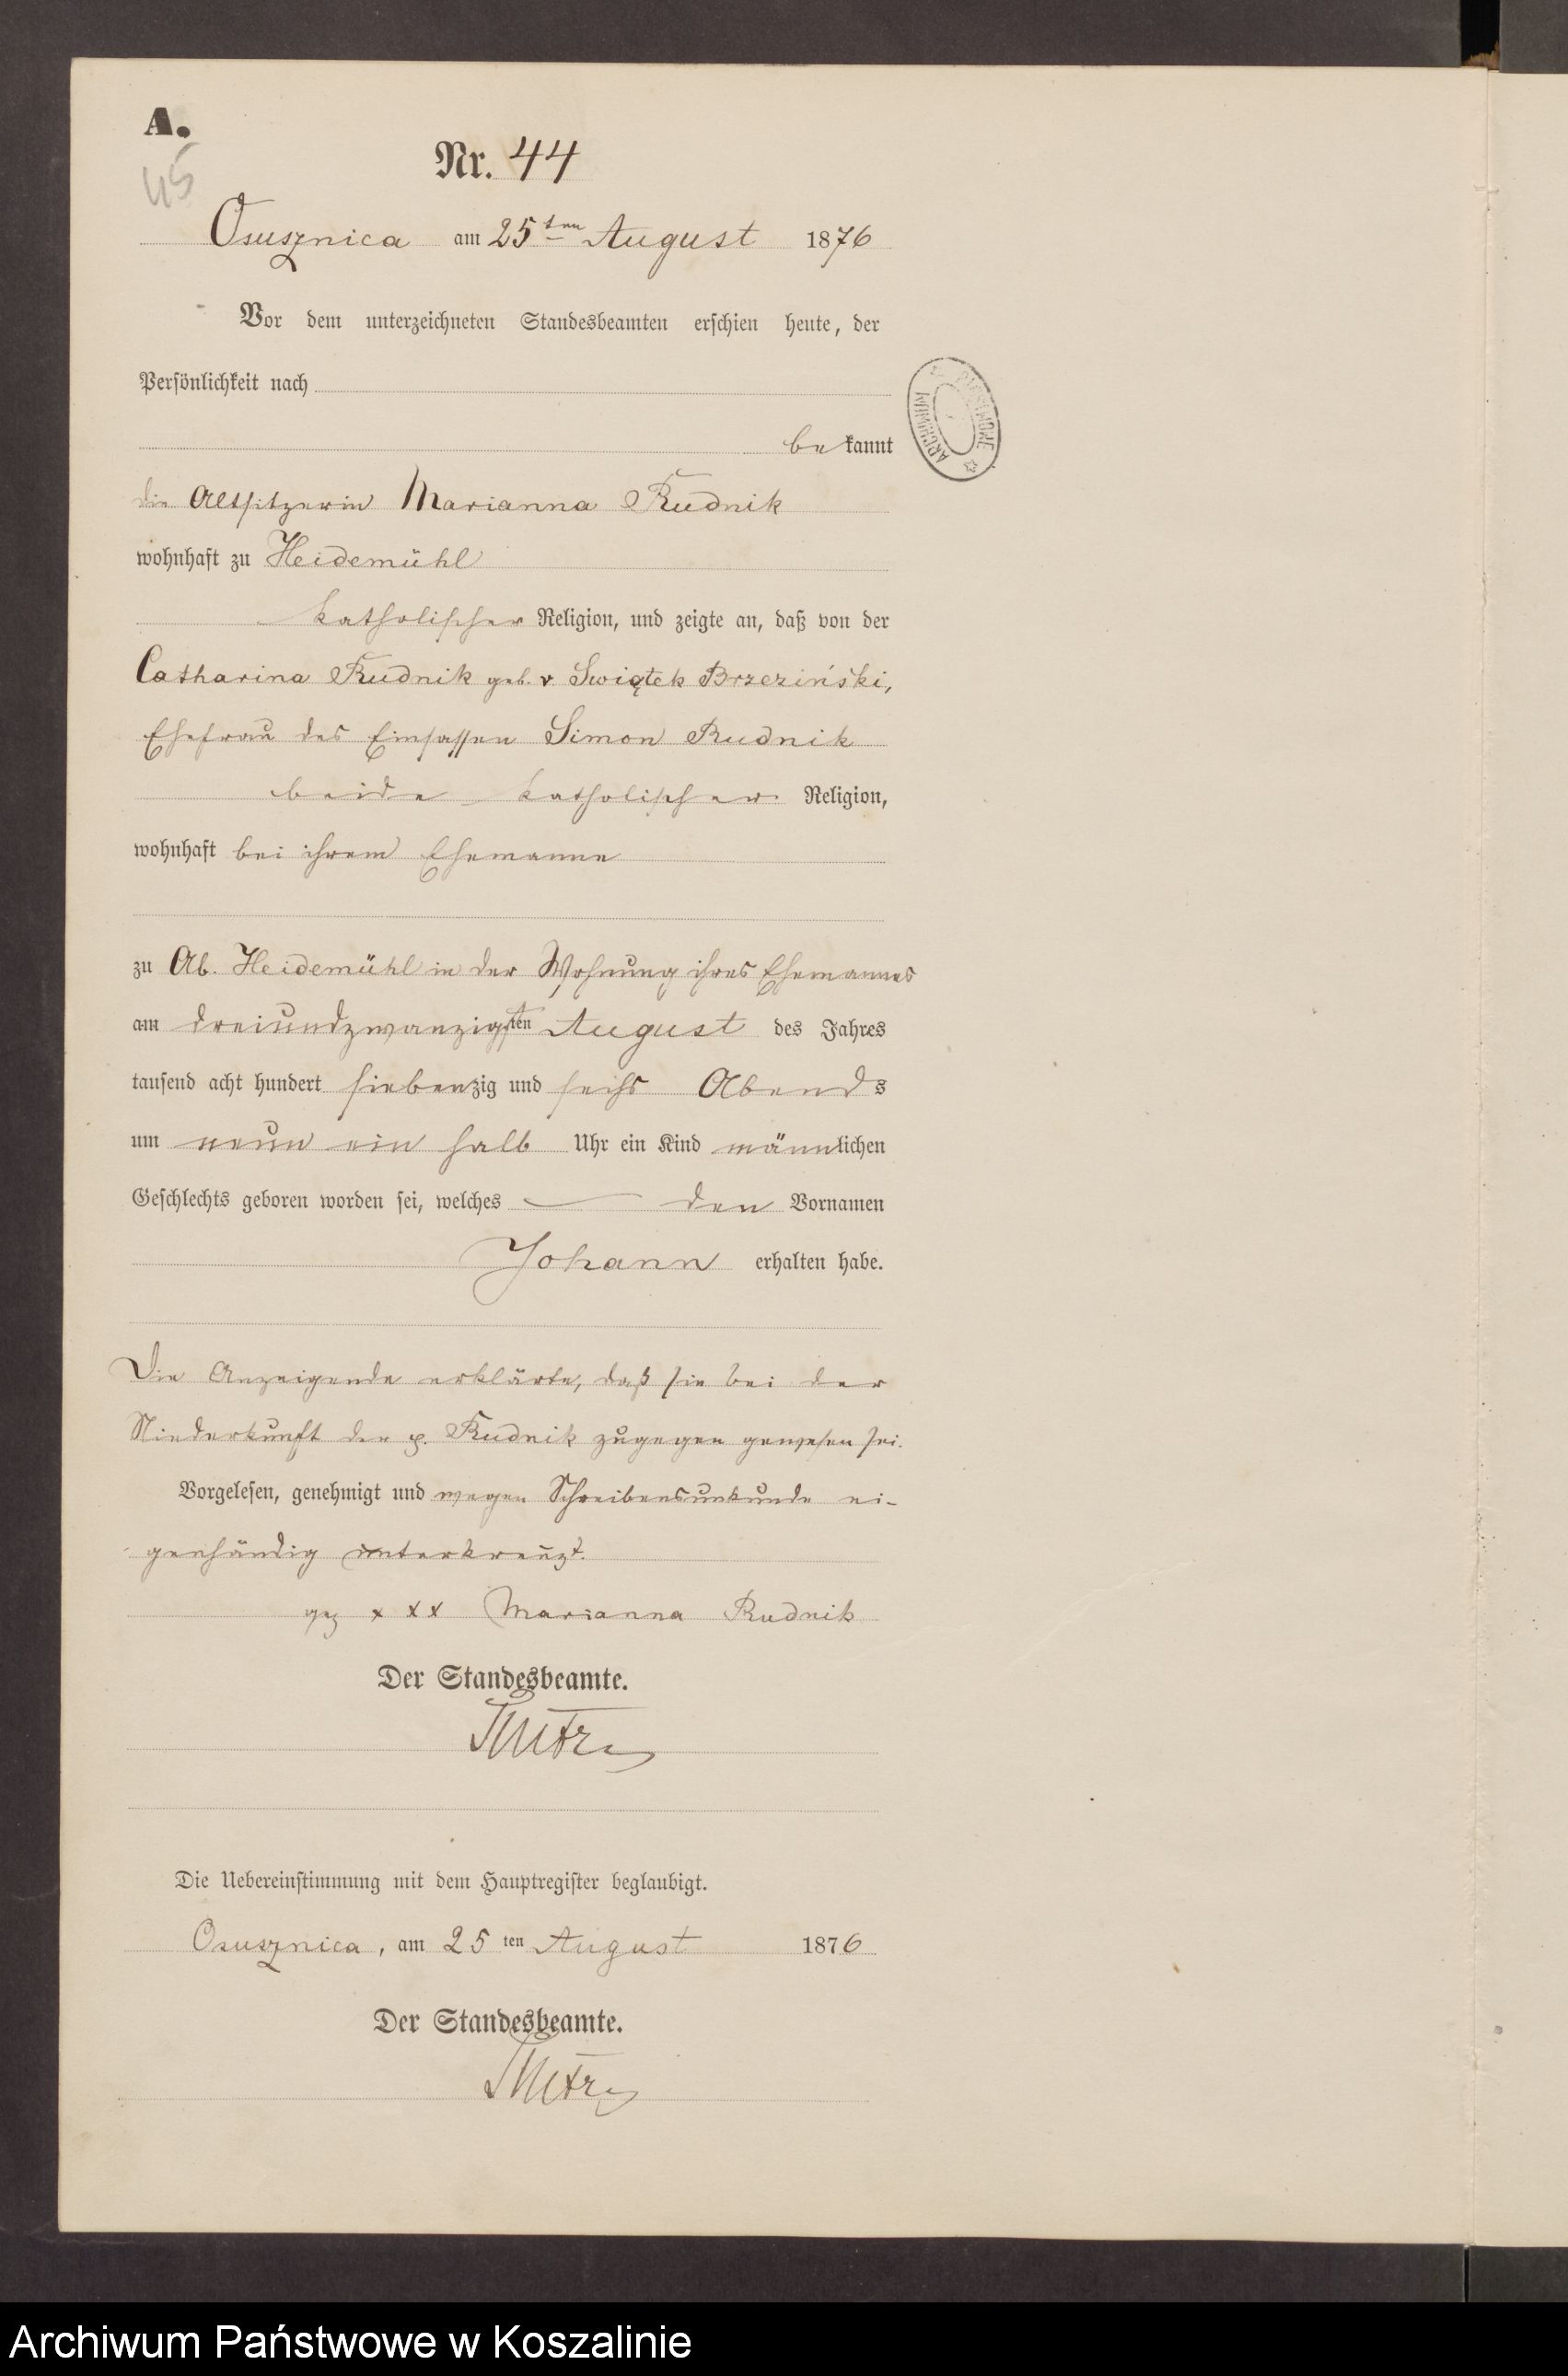 A.
45
Nr. 44
Osusznica am 25ten August 1876
Vor dem unterzeichneten Standesbeamten erschien heute, der
Persönlichkeit nach
bekannt
ARCHIWUM PAŃSTWOWE
die Altsitzerin Marianna Rudnik
wohnhaft zu Heidemühl
katholischer Religion, und zeigte an, daß von der
Catharina Rudnik geb. v. Swiątek Brzeziński,
Ehefrau des Einsassen Simon Rudnik
beide katholischer Religion,
wohnhaft bei ihrem Ehemanne
zu Ab. Heidemühl in der Wohnung ihres Ehemannes
am dreiundzwanzigsten August des Jahres
tausend acht hundert siebenzig und sechs Abends
um neun ein halb Uhr ein Kind männlichen
Geschlechts geboren worden sei, welches den Vornamen
Johann erhalten habe.
Die Anzeigende erklärte, daß sie bei der
Niederkunft der p. Rudnik zugegen gewesen sei.
Vorgelesen, genehmigt und wegen Schreibensunkunde ei-
genhändig unterkreuzt.
gez x x x Marianna Rudnik
Der Standesbeamte.
Die Uebereinstimmung mit dem Hauptregister beglaubigt.
Osusznica, am 25 ten August 1876
Der Standesbeamte.
Archiwum Państwowe w Koszalinie